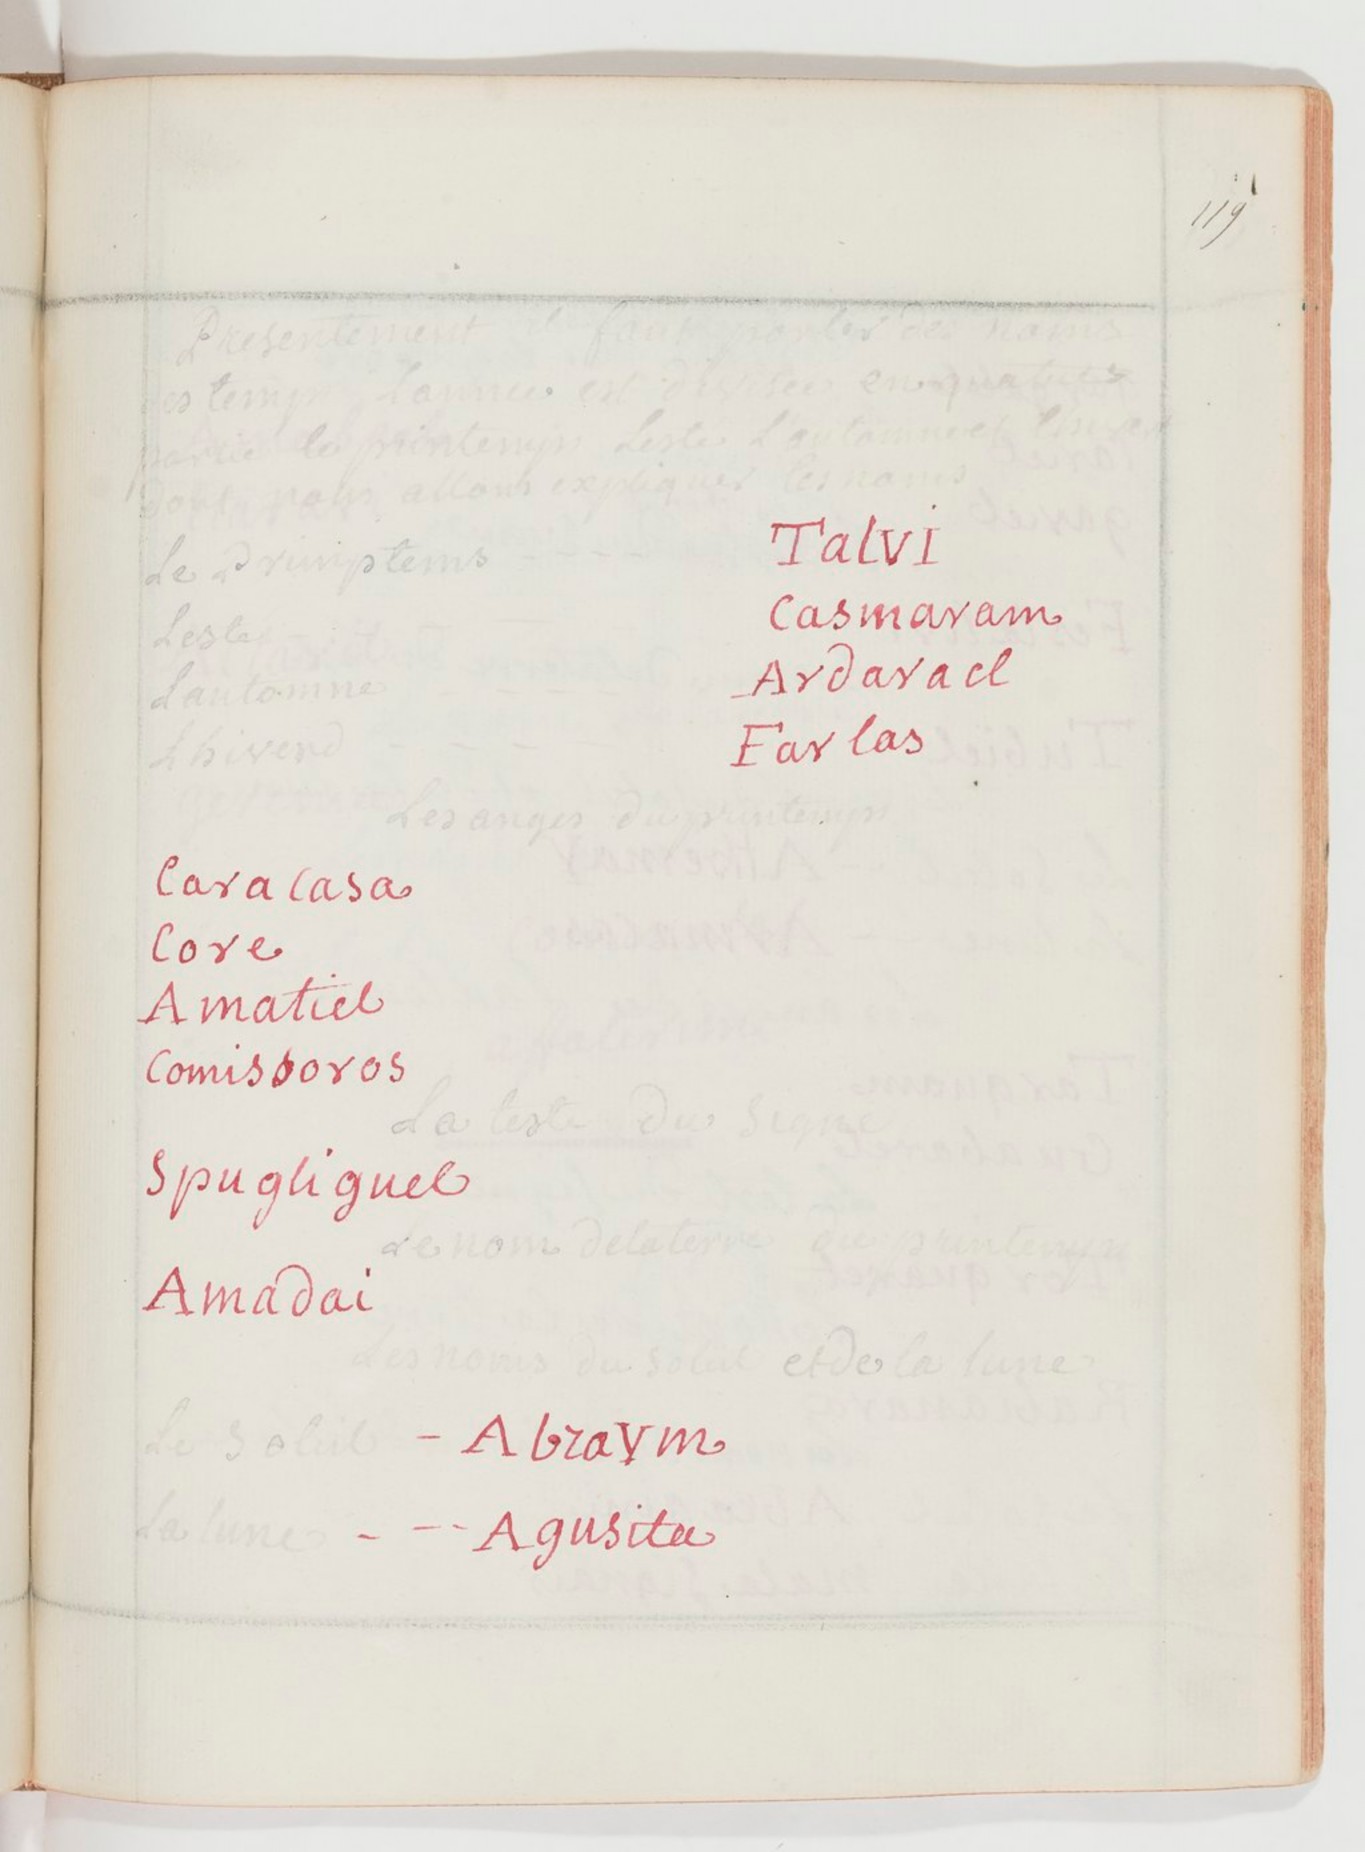 119
Presentement il faut parler des noms
des temps Lannee est divisée en quatres
partie le printemps Leste L'automne et Lhiver
dont nous allons expliquer les noms
Le Primptems - - - - Talvi
Leste Casmaram
Lautomne - - - - Ardarael
Lhiverd - - - - Farlas
Les anges du printemps
Caracasa
Core
Amatiel
Comissoros
La teste du Signe
Spugliguel
Le nom delaterre au printemps
Amadai
Les noms du soleil et de la lune
Le Soleil - Abraym
La lune - - - Agusita